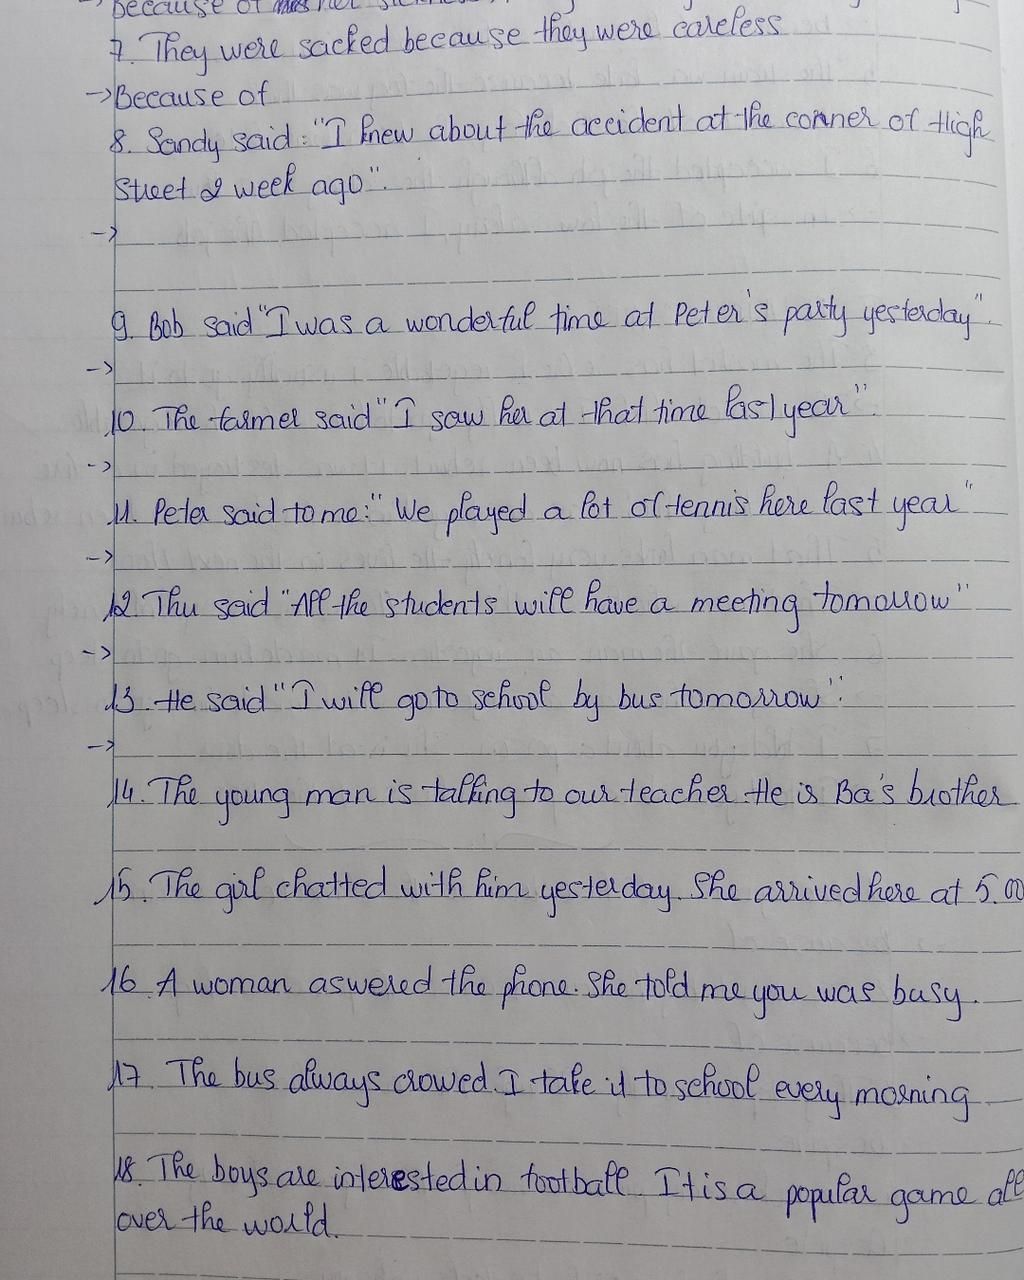 because of her
7. They were sacked because they were careless
->Because of
8. Sandy said: "I knew about the accident at the corner of High
Street 2 week ago".
->
9. Bob said "I was a wonderful time at Peter's party yesterday".
->
10. The farmer said "I saw her at that time last year".
->
11. Peter said to me: "We played a lot of tennis here last year"
->
12. Thu said "All the students will have a meeting tomorrow"
->
13. He said "I will go to school by bus tomorrow".
->
14. The young man is talking to our teacher. He is Ba's brother
15. The girl chatted with him yesterday. She arrived here at 5.00
16. A woman aswered the phone. She told me you was busy.
17. The bus always crowed. I take it to school every morning
18. The boys are interested in football. It is a popular game all
over the world.